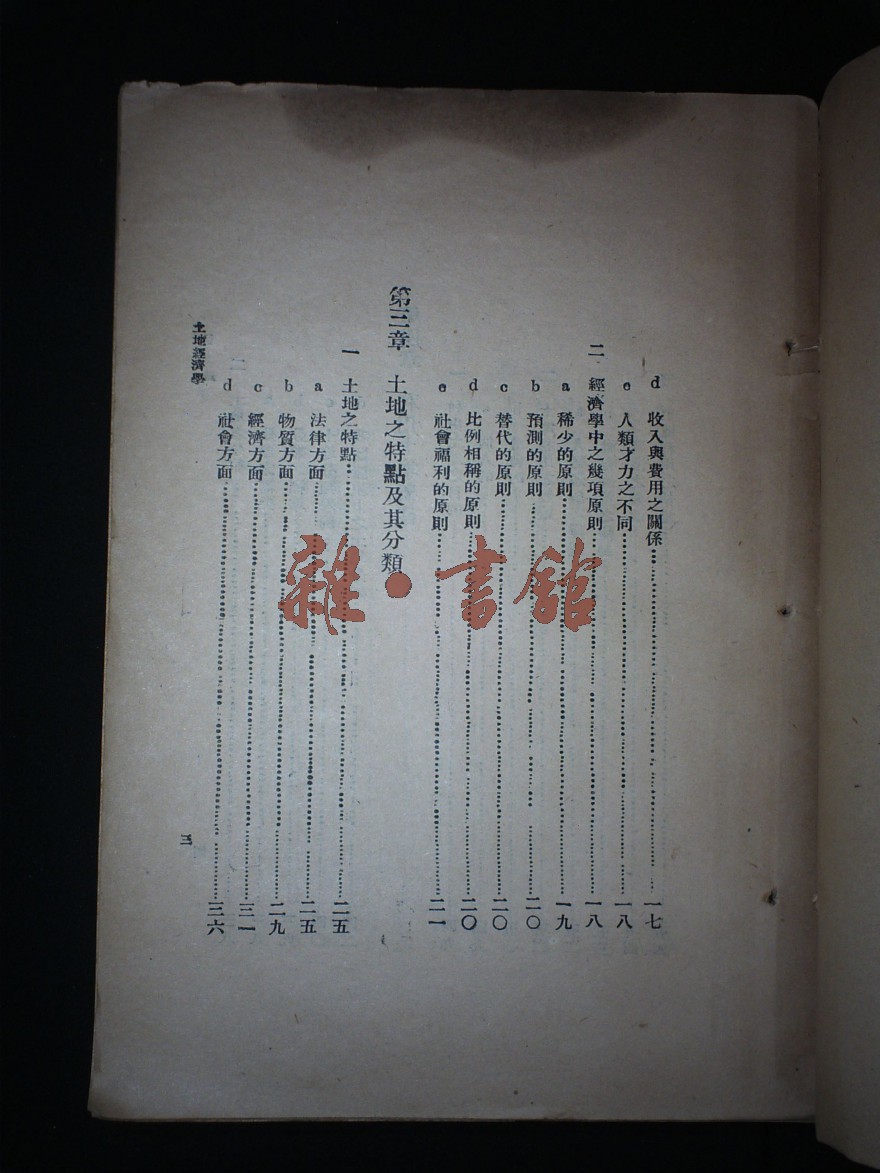 d 收入與費用之關係……一七
e 人類才力之不同……一八
二 經濟學中之幾項原則……一八
a 稀少的原則……一九
b 預測的原則……二〇
c 替代的原則……二〇
d 比例相稱的原則……二〇
e 社會福利的原則……二一
第三章 土地之特點及其分類
一 土地之特點……二五
a 法律方面……二五
b 物質方面……二九
c 經濟方面……三一
d 社會方面……三六
土地經濟學
三
雜·書館